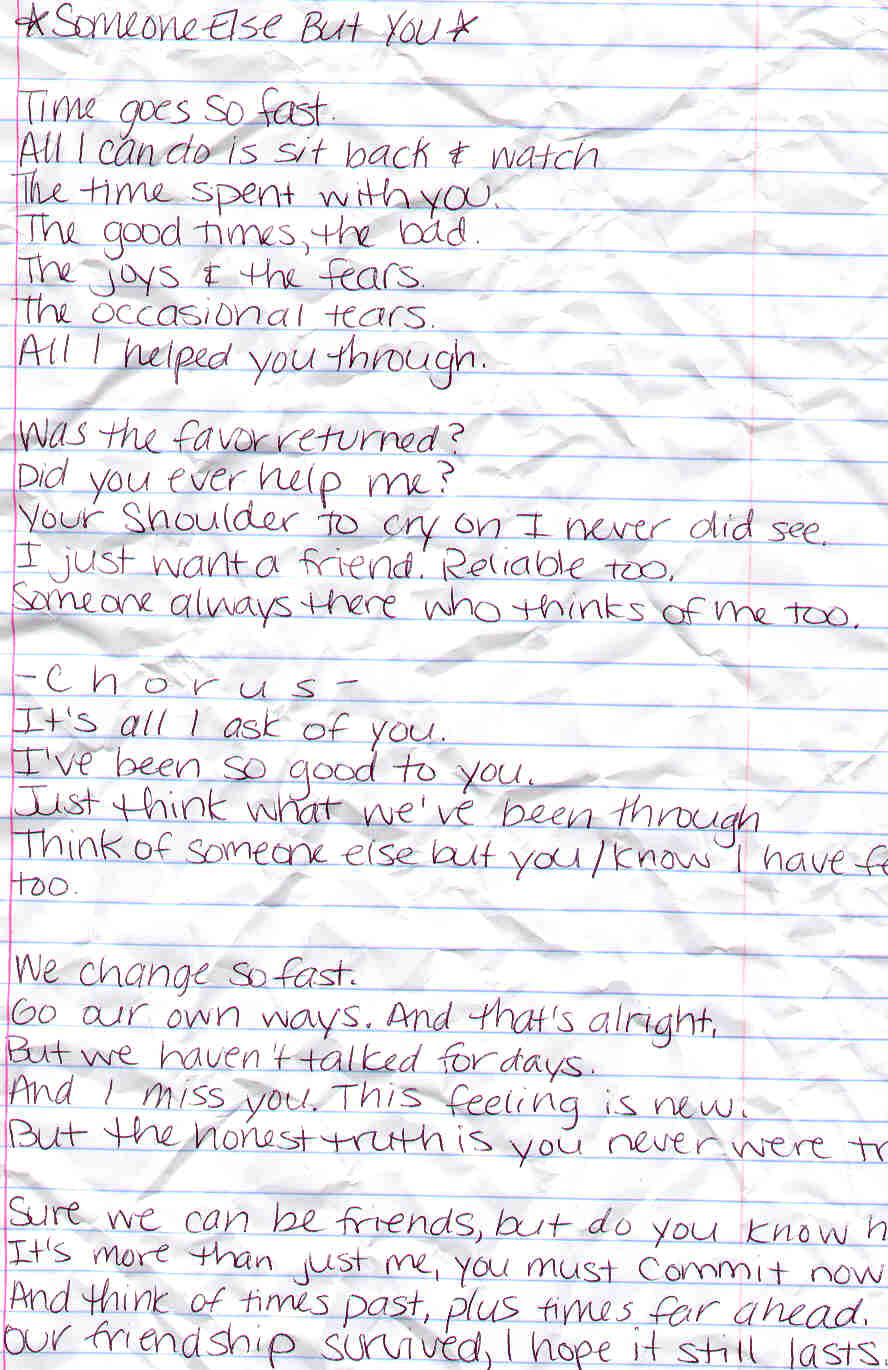 *Someone Else But You*
Time goes so fast.
All I can do is sit back & watch
The time spent with you.
The good times, the bad.
The joys & the fears.
The occasional tears.
All I helped you through.
Was the favor returned?
Did you ever help me?
Your shoulder to cry on I never did see.
I just want a friend. Reliable too.
Someone always there who thinks of me too.
-Chorus-
It's all I ask of you.
I've been so good to you.
Just think what we've been through
Think of someone else but you/know I have
too.
We change so fast.
Go our own ways. And that's alright,
But we haven't talked for days.
And I miss you. This feeling is new.
But the honest truth is you never were
Sure we can be friends, but do you know
It's more than just me, you must commit now
And think of times past, plus times far ahead.
Our friendship survived, I hope it still lasts.